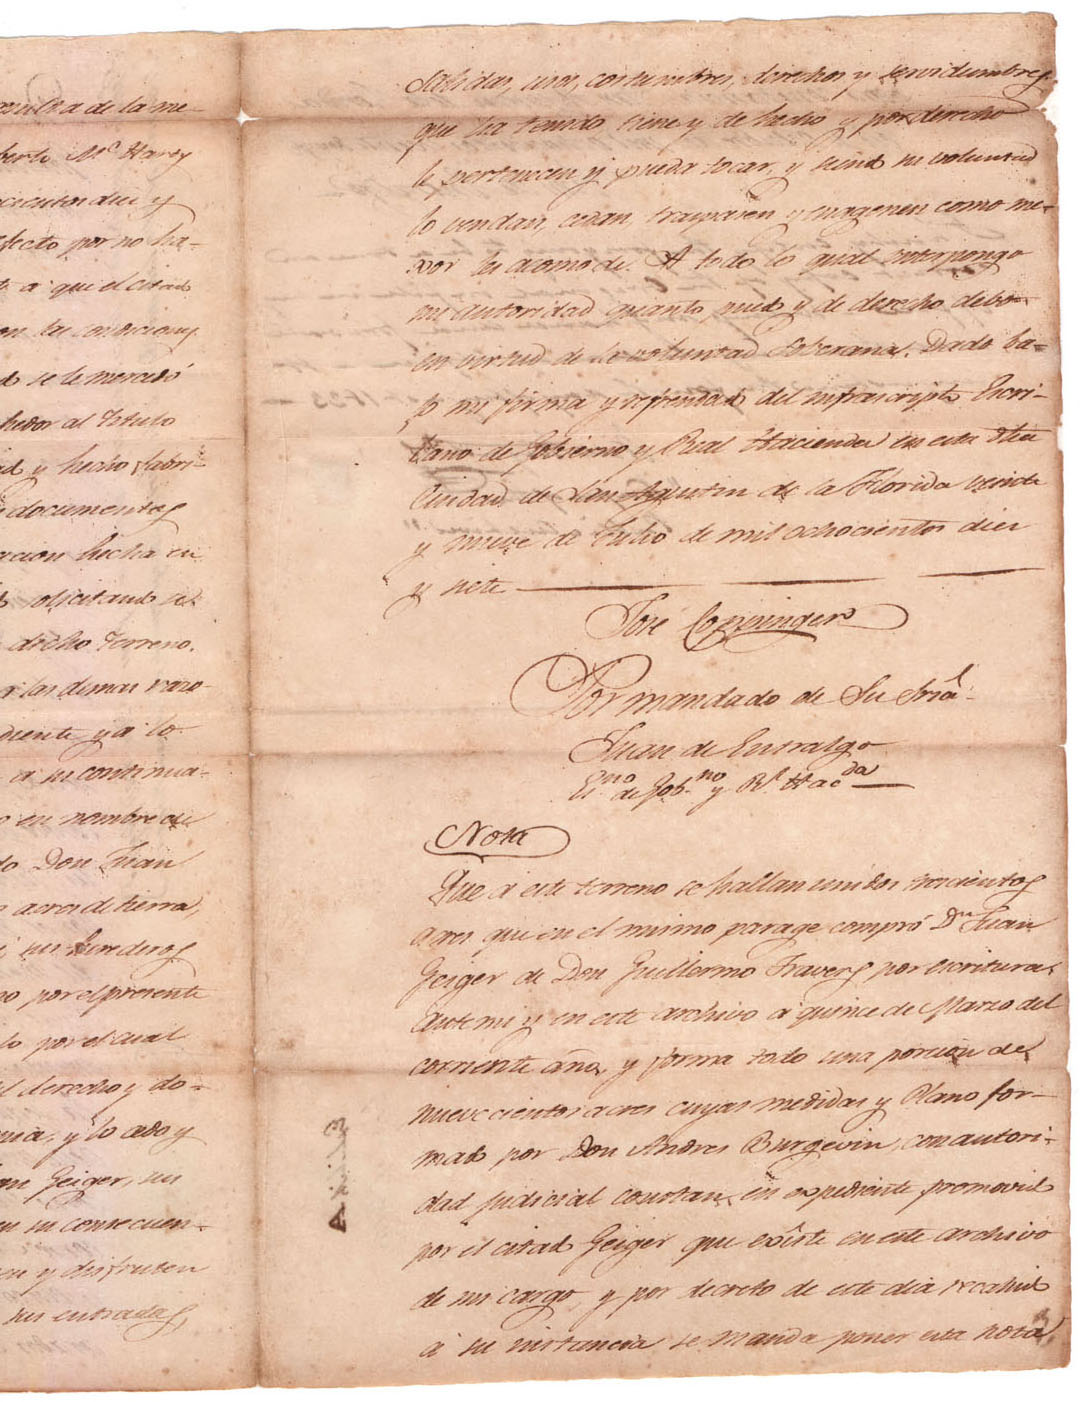 sulta de la me-
berto Mc Hardy
ocientos diez y
efecto por no ha-
a que el citado
on las condiciones
se le mercedó
hedor al Titulo
y hecho fabri-
documentos
acion hecha en
solicitando se
dicho terreno.
a las demas razo-
diente y a lo
a su continua-
en nombre de
do Don Juan
acres de tierra,
sus herederos
mo por el presente
lo por el cual
el derecho y do-
nia, y lo cedo y
an Geiger, sus
en su consecuen-
en y disfruten
sus entradas,
Salidas, usos, costumbres, derechos y servidumbres
que ha tenido tiene y de hecho y por derecho
le pertenecen y pueda tocar, y siendo su voluntad
lo vendan, cedan, traspasen y enagenen como me-
xor les acomode. A todo lo qual interpongo
mi autoridad quanto puedo y de derecho debo
en virtud de la voluntad Soberana. Dado ba-
jo mi firma y refrendado del infrascripto Escri-
bano de Gobierno y Real Hacienda en esta dha
Ciudad de San Agustin de la Florida veinte
y nueve de Julio de mil ochocientos diez
y siete
José Coppinger
Por mandado de Su Sria.
Juan de Entralgo
Esno de Gobno y Rl Hacda
Nota
Que á este terreno se hallan unidos trescientos
acres que en el mismo parage compró Dn Juan
Geiger de Don Guillermo Travers por escritura
ante mi y en este archivo á quince de Marzo del
corriente año, y forma todo una porcion de
nuevecientos acres cuyas medidas y Plano for-
mado por Don Andres Burgevin, con autori-
dad judicial constan en expediente promovido
por el citado Geiger que exîste en este archivo
de mi cargo, y por decreto de este dia recahido
á su instancia se manda poner esta nota